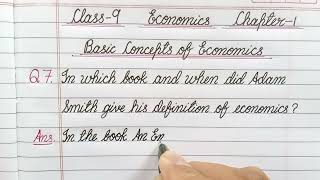 Class-9 Economics Chapter-1
Basic Concepts of Economics
Q7. In which book and when did Adam
Smith give his definition of economics?
Ans. In the book An En